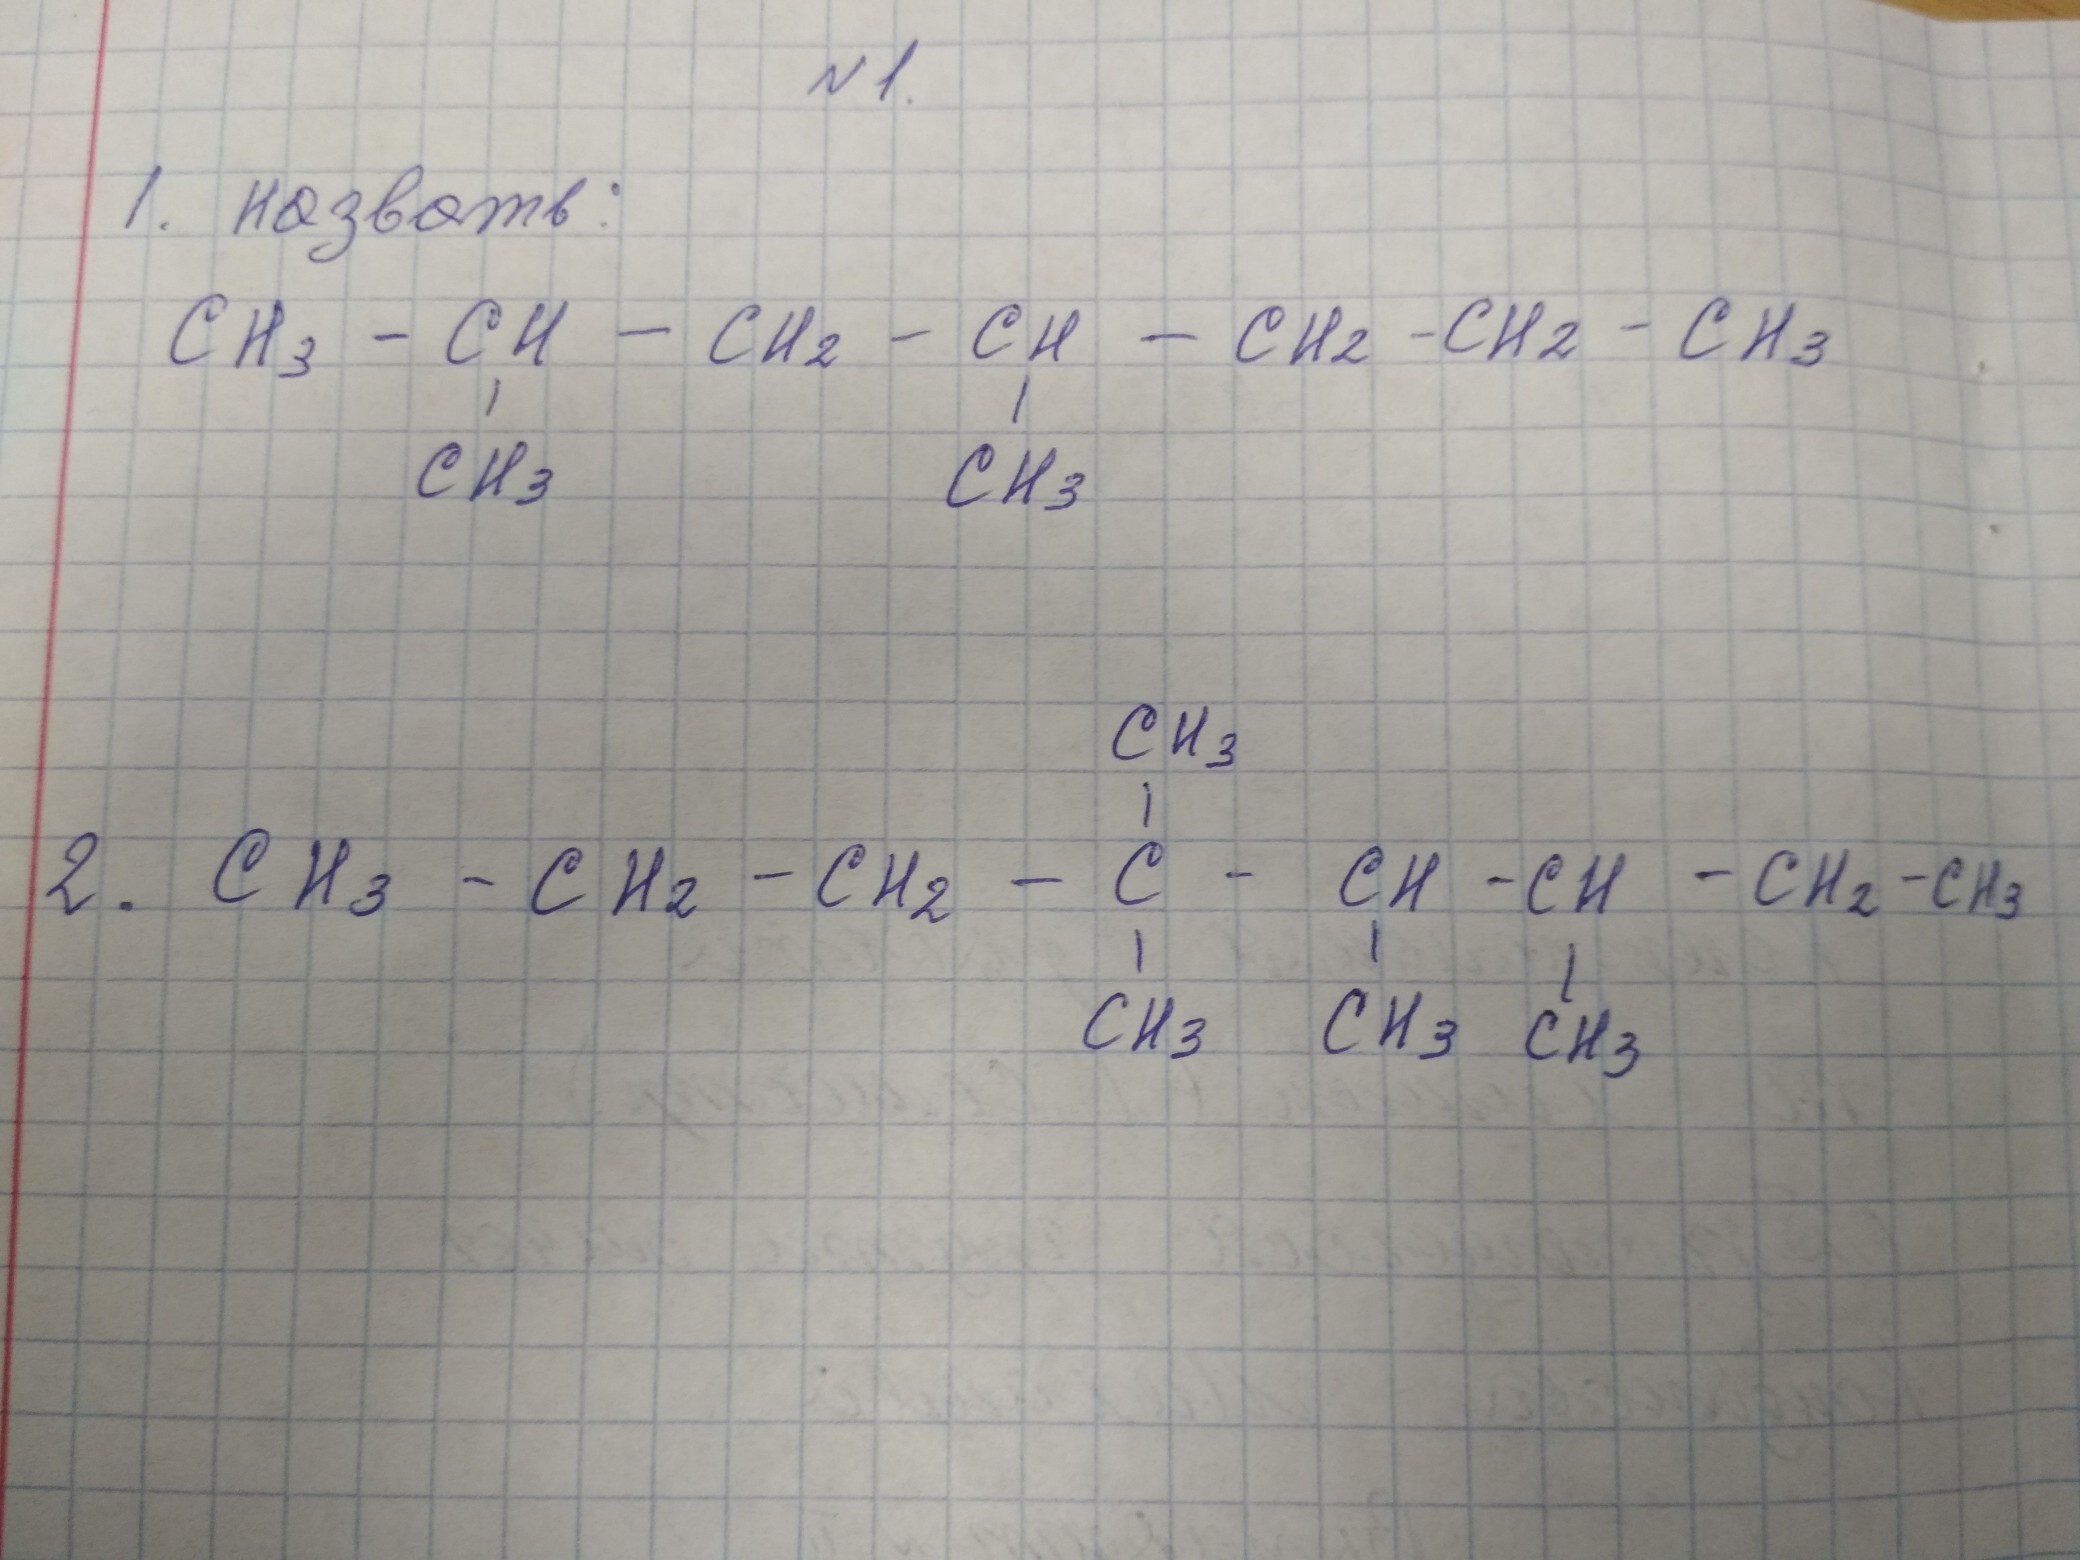 N1.
1. назвать:
CH3 - CH - CH2 - CH - CH2 - CH2 - CH3
CH3 CH3
CH3
2. CH3 - CH2 - CH2 - C - CH - CH - CH2 - CH3
CH3 CH3 CH3